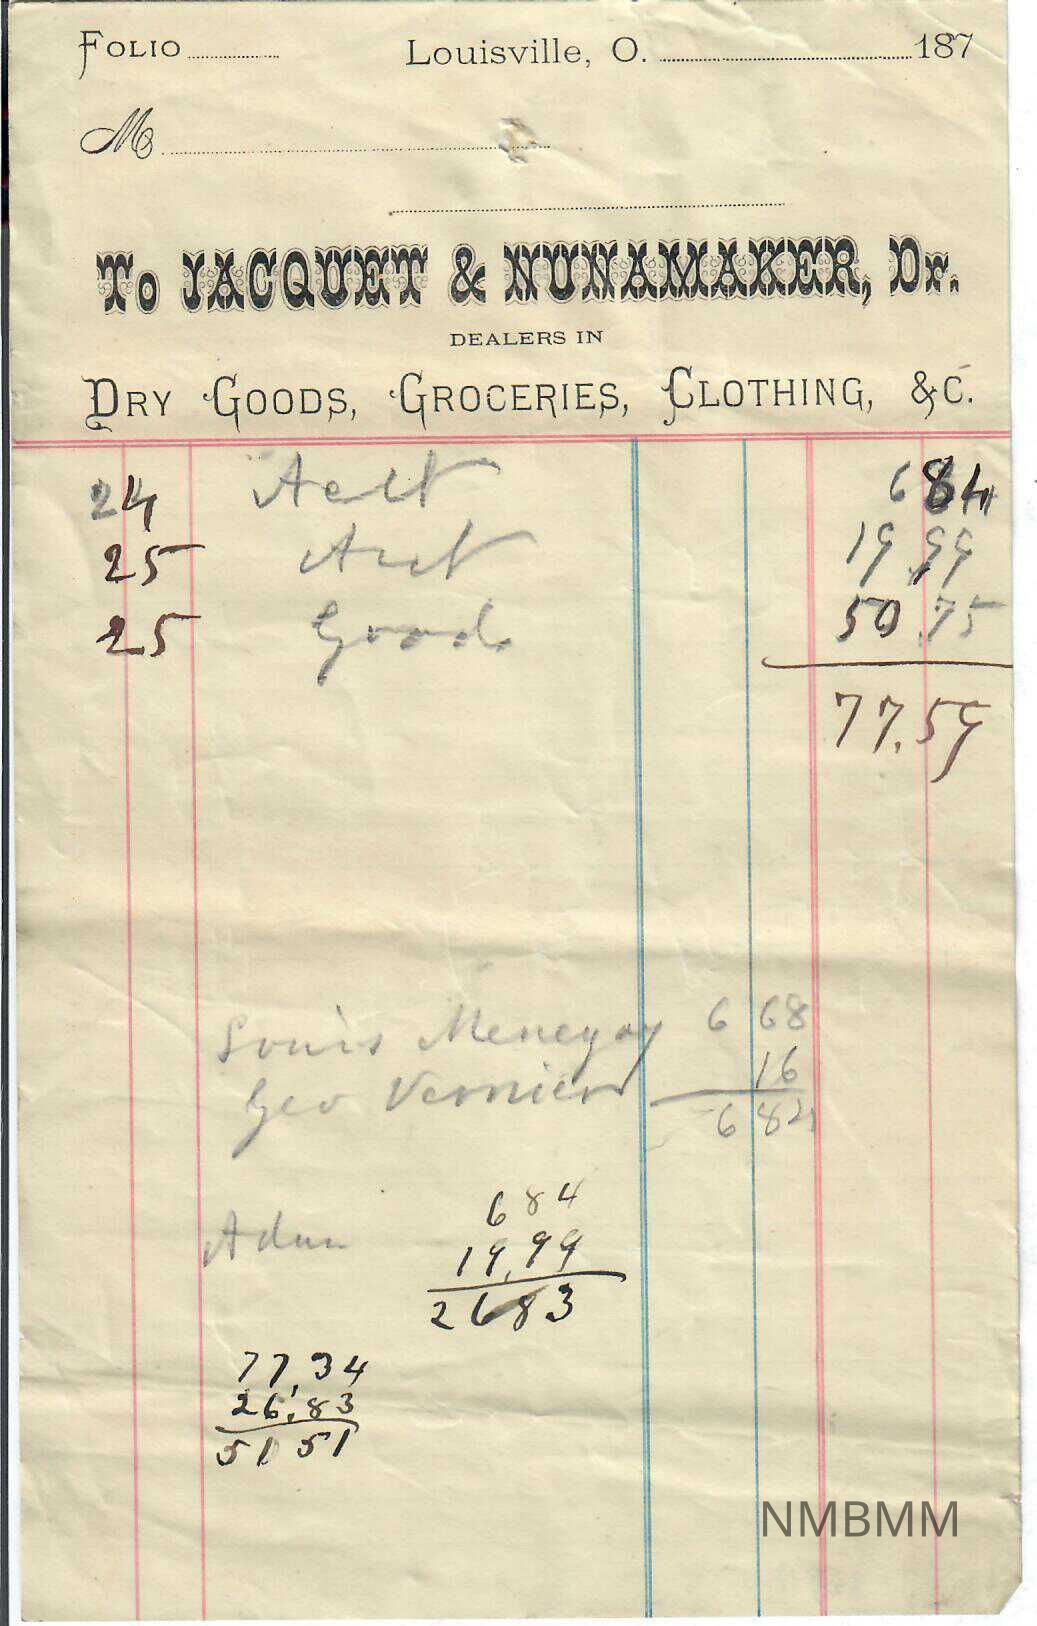 Folio
Louisville, O. 187
M
To JACQUET & NUNAMAKER, Dr.
DEALERS IN
Dry Goods, Groceries, Clothing, &c.
24 6 84
25 19.99
25 Goods 50.75
77.59
Louis Menegay 6 68
Geo Vernier 16
6 82
6 84
19.99
26 83
77.34
26.83
51 51
NMBMM